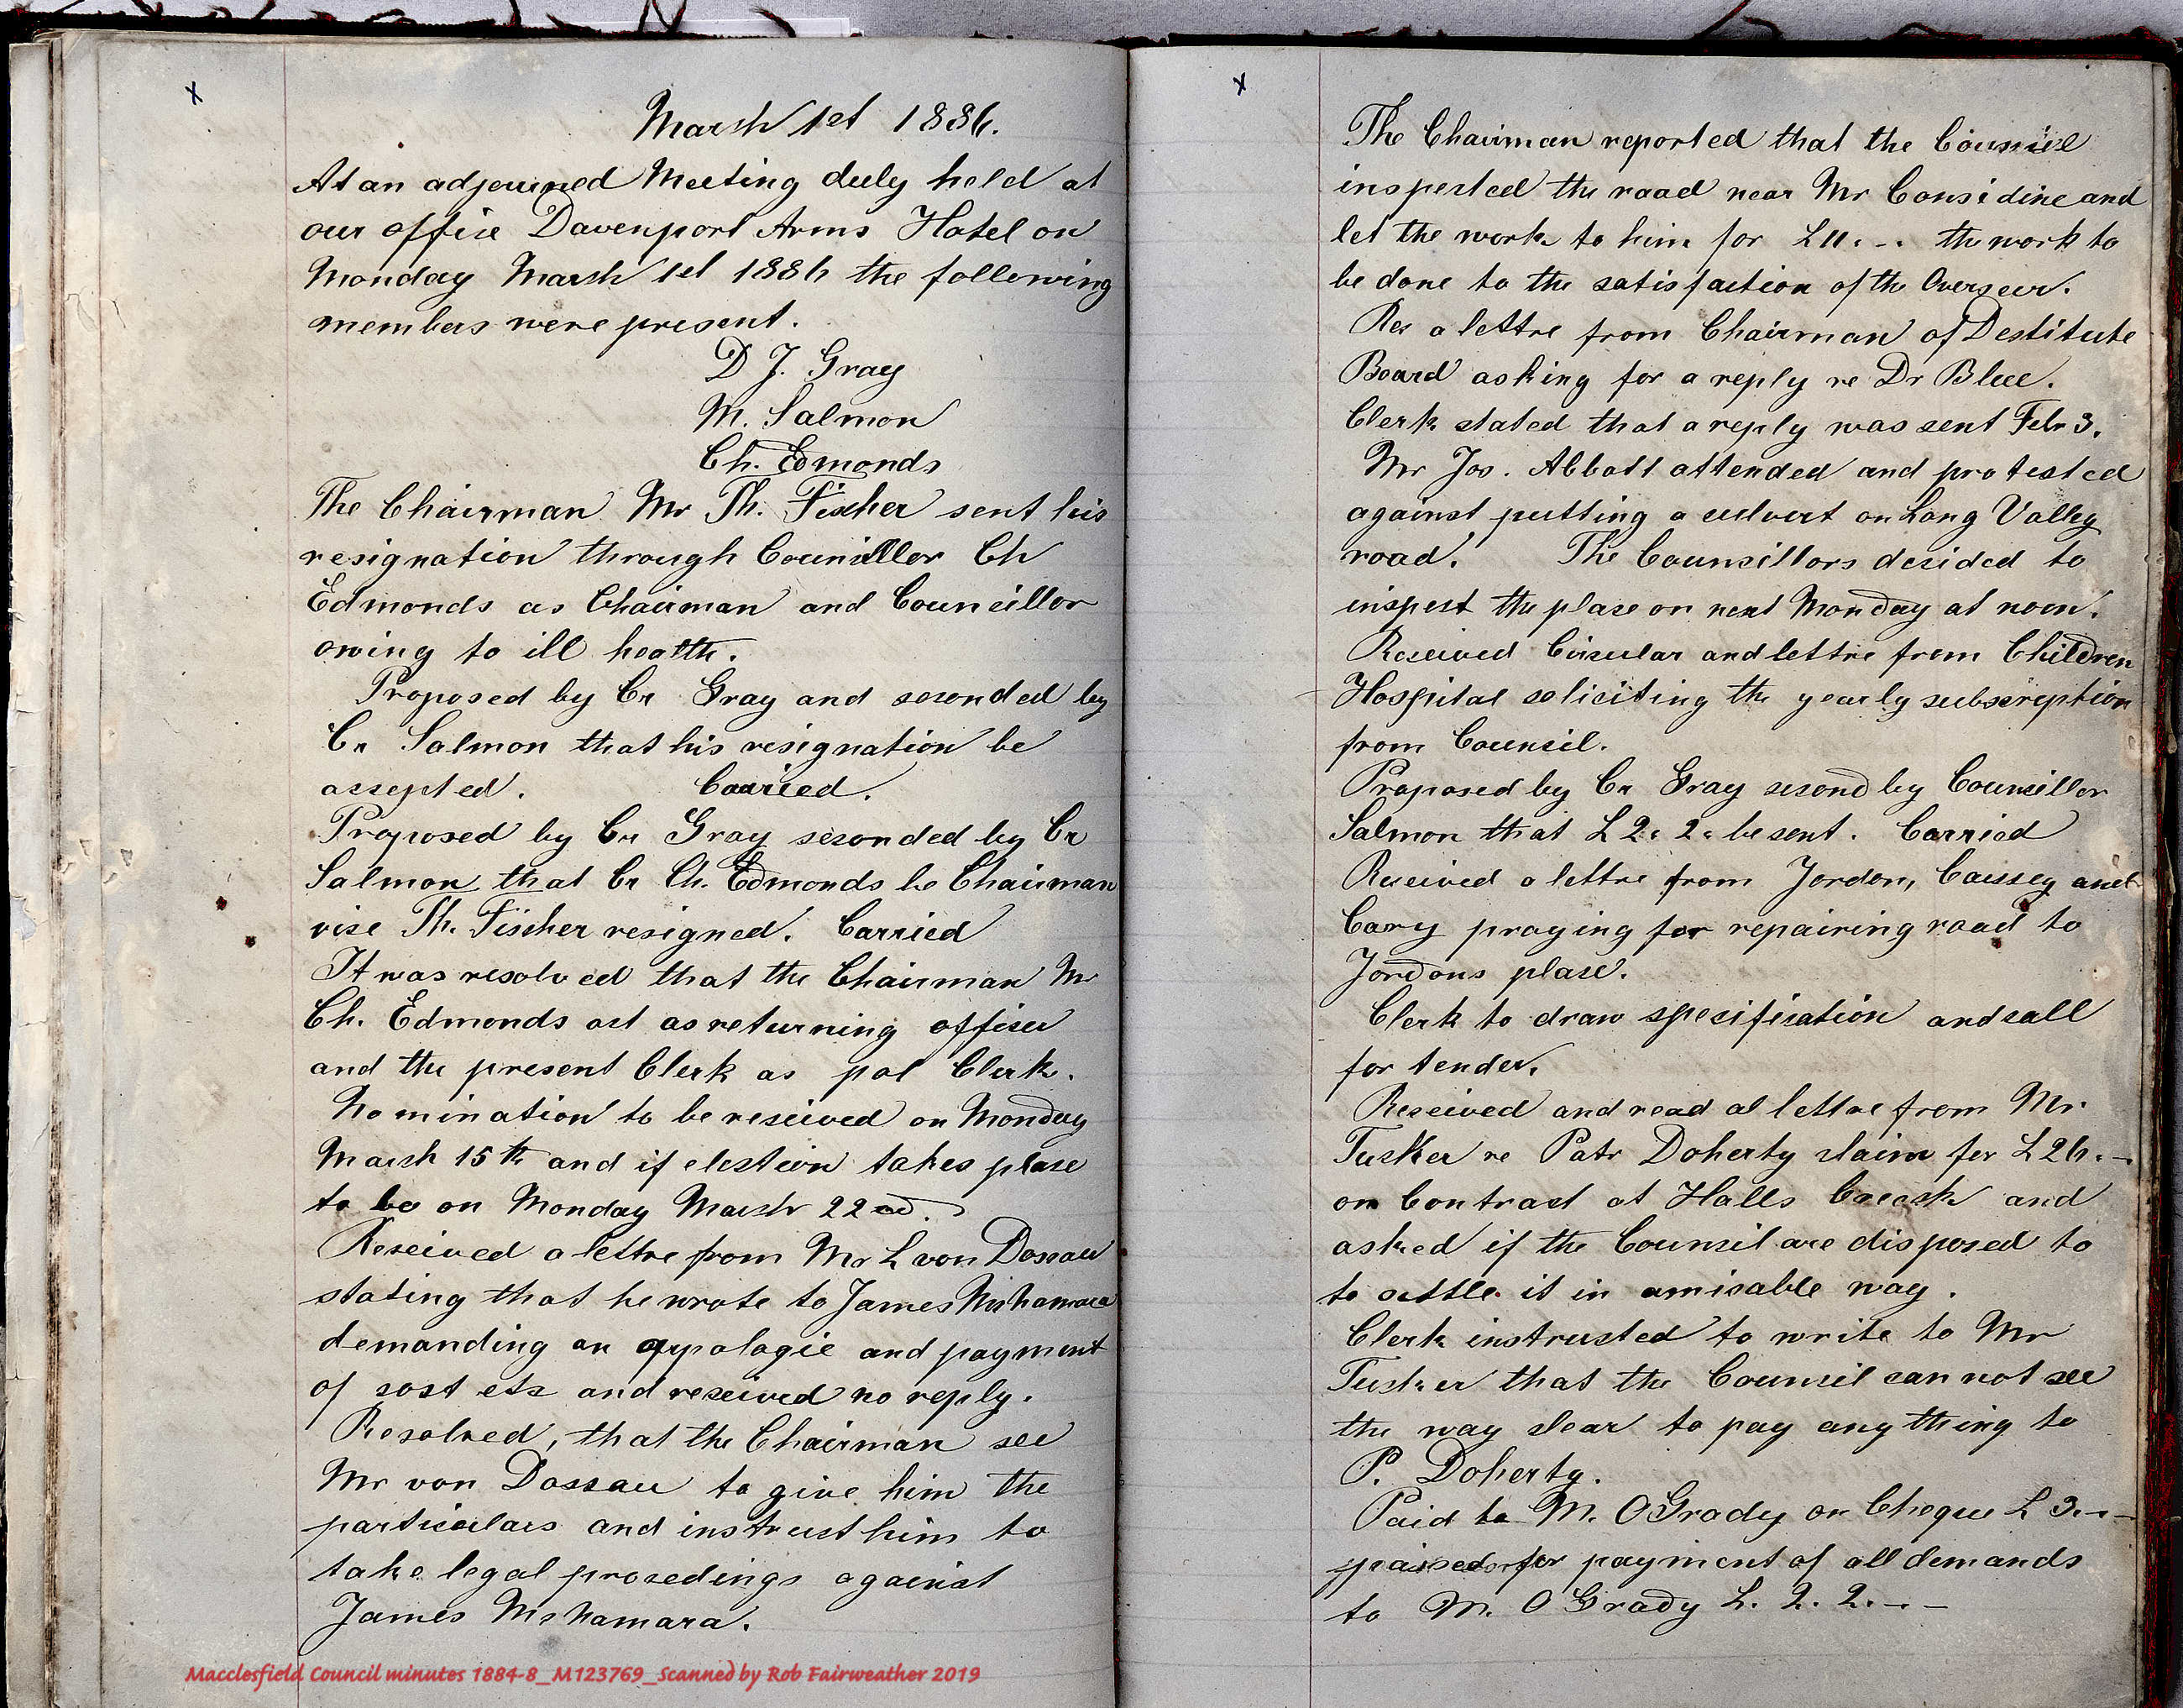 March 1st 1886.
At an adjourned Meeting duly held at
our office Davenport Arms Hotel on
Monday March 1st 1886 the following
members were present.
D J. Gray
M. Salmon
Ch. Edmonds
The Chairman Mr Th. Fischer sent his
resignation through Councillor Ch
Edmonds as Chairman and Councillor
owing to ill health.
Proposed by Cr Gray and seconded by
Cr Salmon that his resignation be
accepted. Carried.
Proposed by Cr Gray seconded by Cr
Salmon that Cr Ch. Edmonds be Chairman
vice Th. Fischer resigned. Carried
It was resolved that the Chairman Mr
Ch. Edmonds act as returning officer
and the present Clerk as pol Clerk.
Nomination to be received on Monday
March 15th and if election takes place
to be on Monday March 22nd.
Received a lettre from Mr L von Dossau
stating that he wrote to James McNamara
demanding an appologie and payment
of cost etc and received no reply.
Resolved, that the Chairman see
Mr von Dossau to give him the
particulars and instruct him to
take legal procedings against
James McNamara.
Macclesfield Council minutes 1884-8_M123769_Scanned by Rob Fairweather 2019
x
x
The Chairman reported that the Council
inspected the road near Mr Considine and
let the work to him for £11.-. the work to
be done to the satisfaction of the Overseer.
Rec a lettre from Chairman of Destitute
Board asking for a reply re Dr Blue.
Clerk stated that a reply was sent Febr 3.
Mr Jos. Abbott attended and protested
against putting a culvert on Long Valley
road. The Councillors decided to
inspect the place on next Monday at noon.
Received Circular and lettre from Children
Hospital soliciting the yearly subscreption
from Council.
Proposed by Cr Gray second by Councillor
Salmon that £2.2. be sent. Carried
Received a lettre from Jordon, Caussey and
Cary praying for repairing road to
Jordons place.
Clerk to draw specification and call
for tender.
Received and read a lettre from Mr
Tucker re Patr Doherty claim for £26.-
on Contract at Halls Creeck and
asked if the Council are disposed to
to settle it in amicable way.
Clerk instructed to write to Mr
Tucker that the Council can not see
the way clear to pay any thing to
P. Doherty.
Paid to M. OGrady on Cheque £3.-.-
for payment of all demands
to M. OGrady £. 2. 2.-.-